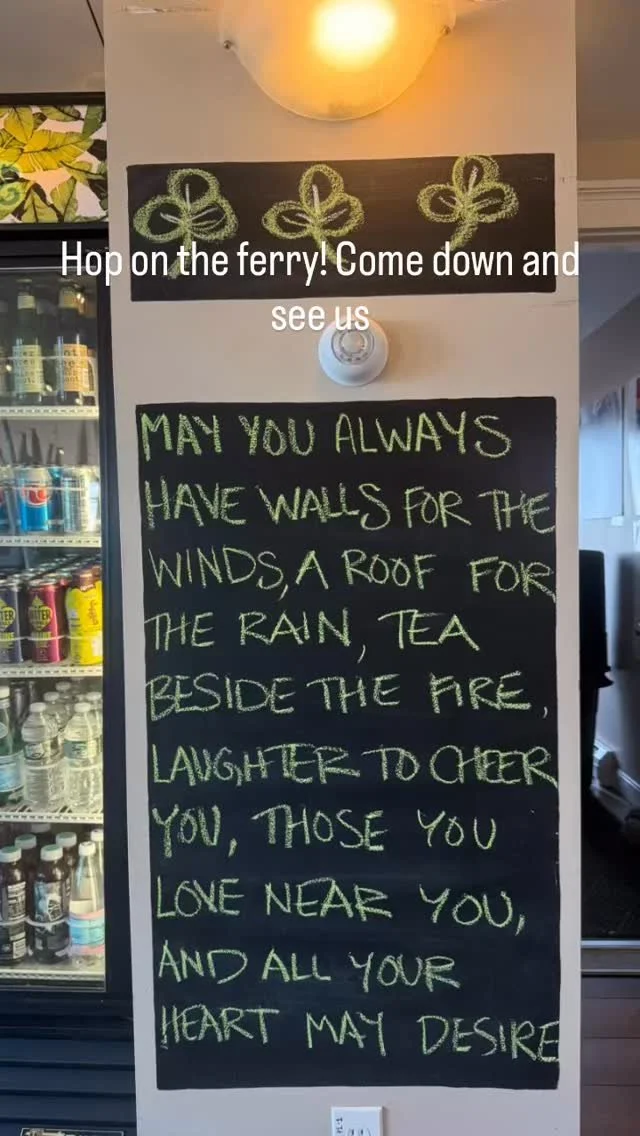 Hop on the ferry! Come down and
see us
MAY YOU ALWAYS
HAVE WALLS FOR THE
WINDS, A ROOF FOR
THE RAIN, TEA
BESIDE THE FIRE,
LAUGHTER TO CHEER
YOU, THOSE YOU
LOVE NEAR YOU,
AND ALL YOUR
HEART MAY DESIRE